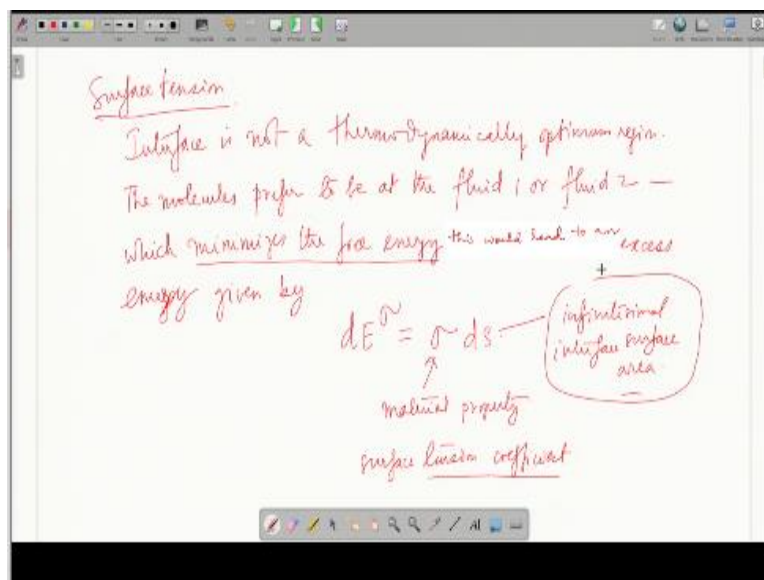 Surface tension
Interface is not a thermodynamically optimum region.
The molecules prefer to be at the fluid 1 or fluid 2 —
which minimizes the free energy this would lead to an excess
energy given by
dE^σ = σ ds
infinitesimal
interface surface
area
material property
surface tension coefficient